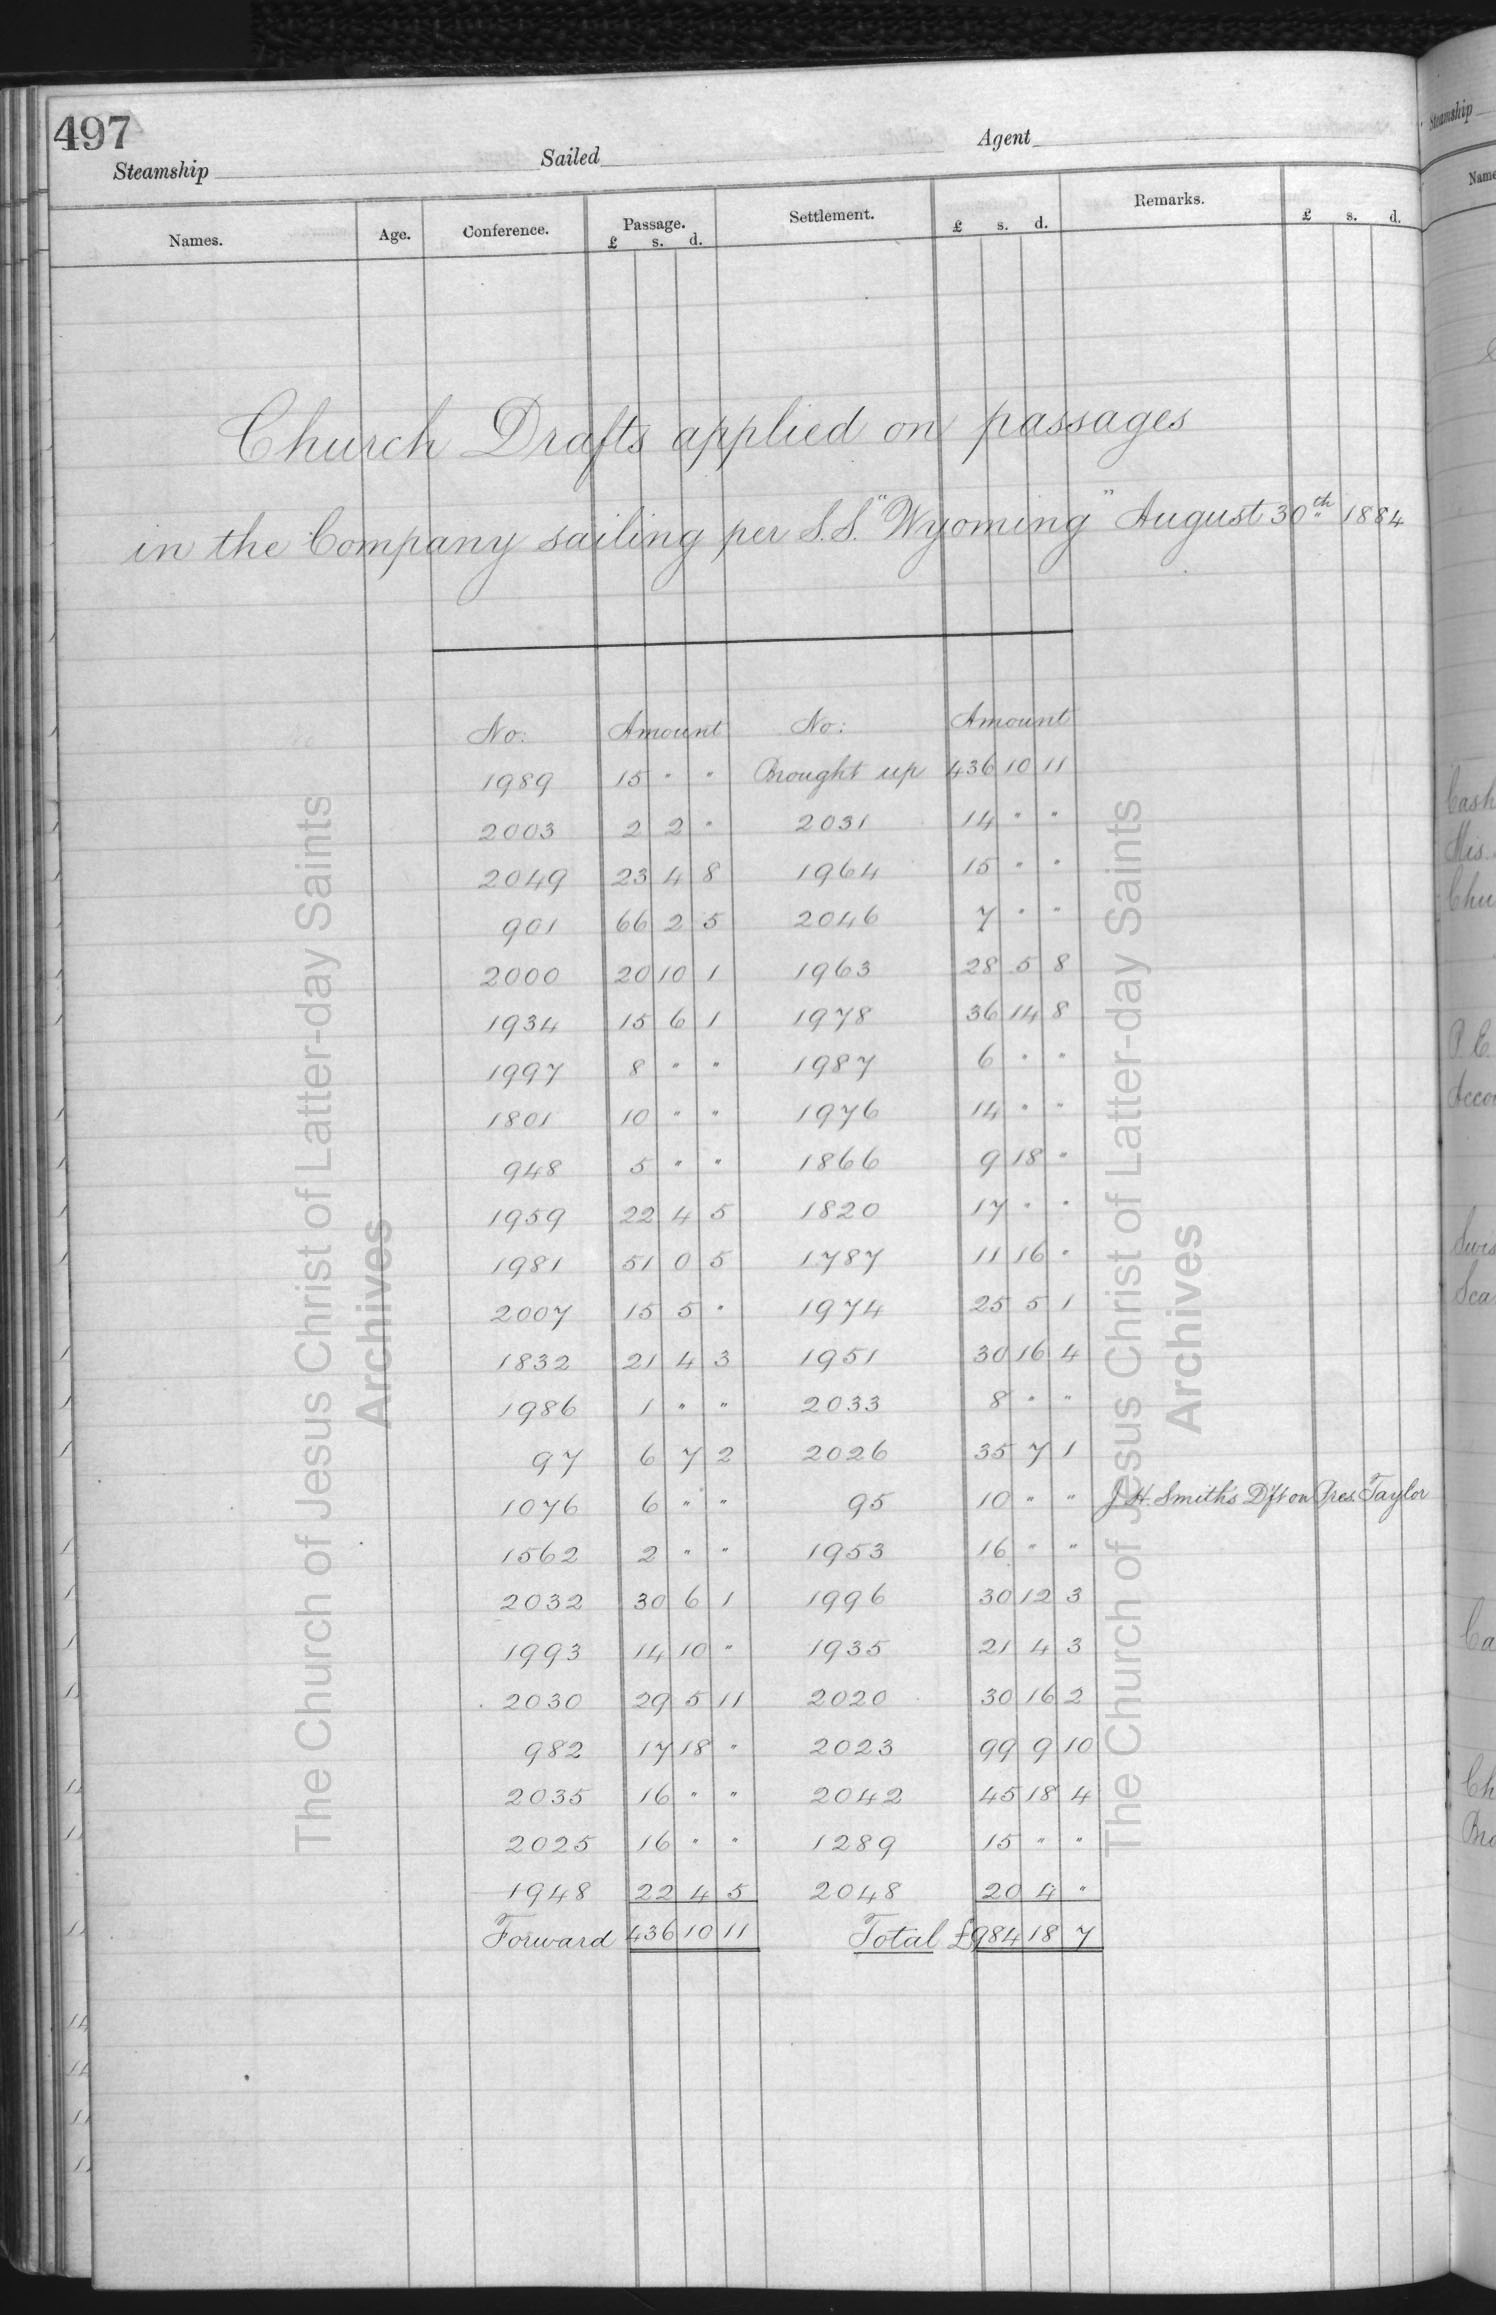 497
Steamship Sailed Agent
Names. Age. Conference. Passage. £ s. d. Settlement. £ s. d. Remarks. £ s. d.
Church Drafts applied on passages
in the Company sailing per S.S. "Wyoming" August 30th 1884
No: Amount No: Amount
1989 15 " " Brought up 436 10 11
2003 2 2 " 2031 14 " "
2049 23 4 8 1964 15 " "
901 66 2 5 2046 7 " "
2000 20 10 1 1963 28 5 8
1934 15 6 1 1978 36 14 8
1997 8 " " 1987 6 " "
1801 10 " " 1976 14 " "
948 5 " " 1866 9 18 "
1959 22 4 5 1820 17 " "
1981 51 0 5 1787 11 16 "
2007 15 5 " 1974 25 5 1
1832 21 4 3 1951 30 16 4
1986 1 " " 2033 8 " "
97 6 7 2 2026 35 7 1
1076 6 " " 95 10 " " J H. Smith's Dft on Pres. Taylor
1562 2 " " 1953 16 " "
2032 30 6 1 1996 30 12 3
1993 14 10 " 1935 21 4 3
2030 29 5 11 2020 30 16 2
982 17 18 " 2023 99 9 10
2035 16 " " 2042 45 18 4
2025 16 " " 1289 15 " "
1948 22 4 5 2048 20 4 "
Forward 436 10 11 Total £984 18 7
The Church of Jesus Christ of Latter-day Saints
Archives
The Church of Jesus Christ of Latter-day Saints
Archives
Steamship
Name
Cash
Mis.
Chu
P. E.
Acco
Swis
Sca
Ca
Ch
Bro